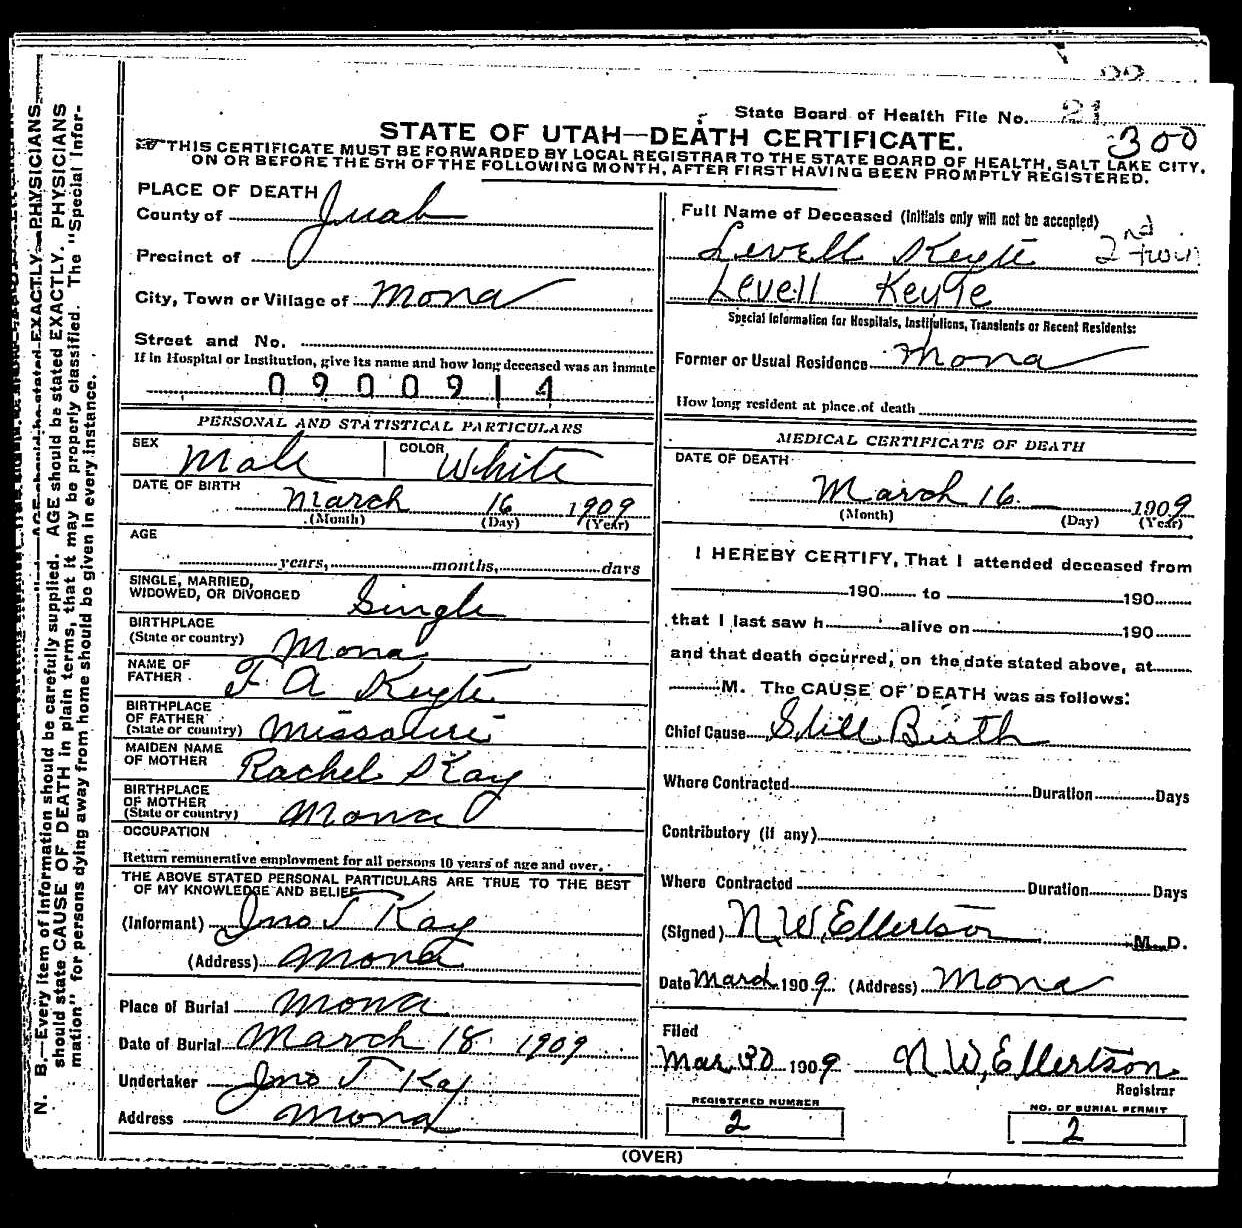 State Board of Health File No. 21
300
STATE OF UTAH—DEATH CERTIFICATE.
THIS CERTIFICATE MUST BE FORWARDED BY LOCAL REGISTRAR TO THE STATE BOARD OF HEALTH, SALT LAKE CITY,
ON OR BEFORE THE 5TH OF THE FOLLOWING MONTH, AFTER FIRST HAVING BEEN PROMPTLY REGISTERED.
PLACE OF DEATH
County of Juab
Precinct of
City, Town or Village of Mona
Street and No.
If in Hospital or Institution, give its name and how long deceased was an inmate
0900914
PERSONAL AND STATISTICAL PARTICULARS
SEX Male COLOR White
DATE OF BIRTH
March 16 1909
(Month) (Day) (Year)
AGE
years, months, days
SINGLE, MARRIED,
WIDOWED, OR DIVORCED Single
BIRTHPLACE
(State or country) Mona
NAME OF
FATHER F A Keyte
BIRTHPLACE
OF FATHER
(State or country) Missouri
MAIDEN NAME
OF MOTHER Rachel Kay
BIRTHPLACE
OF MOTHER
(State or country) Mona
OCCUPATION
Return remunerative employment for all persons 10 years of age and over.
THE ABOVE STATED PERSONAL PARTICULARS ARE TRUE TO THE BEST
OF MY KNOWLEDGE AND BELIEF
(Informant) Jno T Kay
(Address) Mona
Place of Burial Mona
Date of Burial March 18 1909
Undertaker Jno T Kay
Address Mona
Full Name of Deceased (Initials only will not be accepted)
Levell Keyte 2nd
Levell Keyte
Special Information for Hospitals, Institutions, Transients or Recent Residents:
Former or Usual Residence Mona
How long resident at place of death
MEDICAL CERTIFICATE OF DEATH
DATE OF DEATH
March 16 1909
(Month) (Day) (Year)
I HEREBY CERTIFY, That I attended deceased from
190 to 190
that I last saw h alive on 190
and that death occurred, on the date stated above, at
M. The CAUSE OF DEATH was as follows:
Chief Cause Still Birth
Where Contracted Duration Days
Contributory (if any)
Where Contracted Duration Days
(Signed) N. W. Ellertson M. D.
Date March 1909 (Address) Mona
Filed
Mar 30 1909 N W. Ellertson
Registrar
REGISTERED NUMBER
2
NO. OF BURIAL PERMIT
2
(OVER)
N. B.—Every item of information should be carefully supplied. AGE should be stated EXACTLY. PHYSICIANS
should state CAUSE OF DEATH in plain terms, that it may be properly classified. The "Special Infor-
mation" for persons dying away from home should be given in every instance.